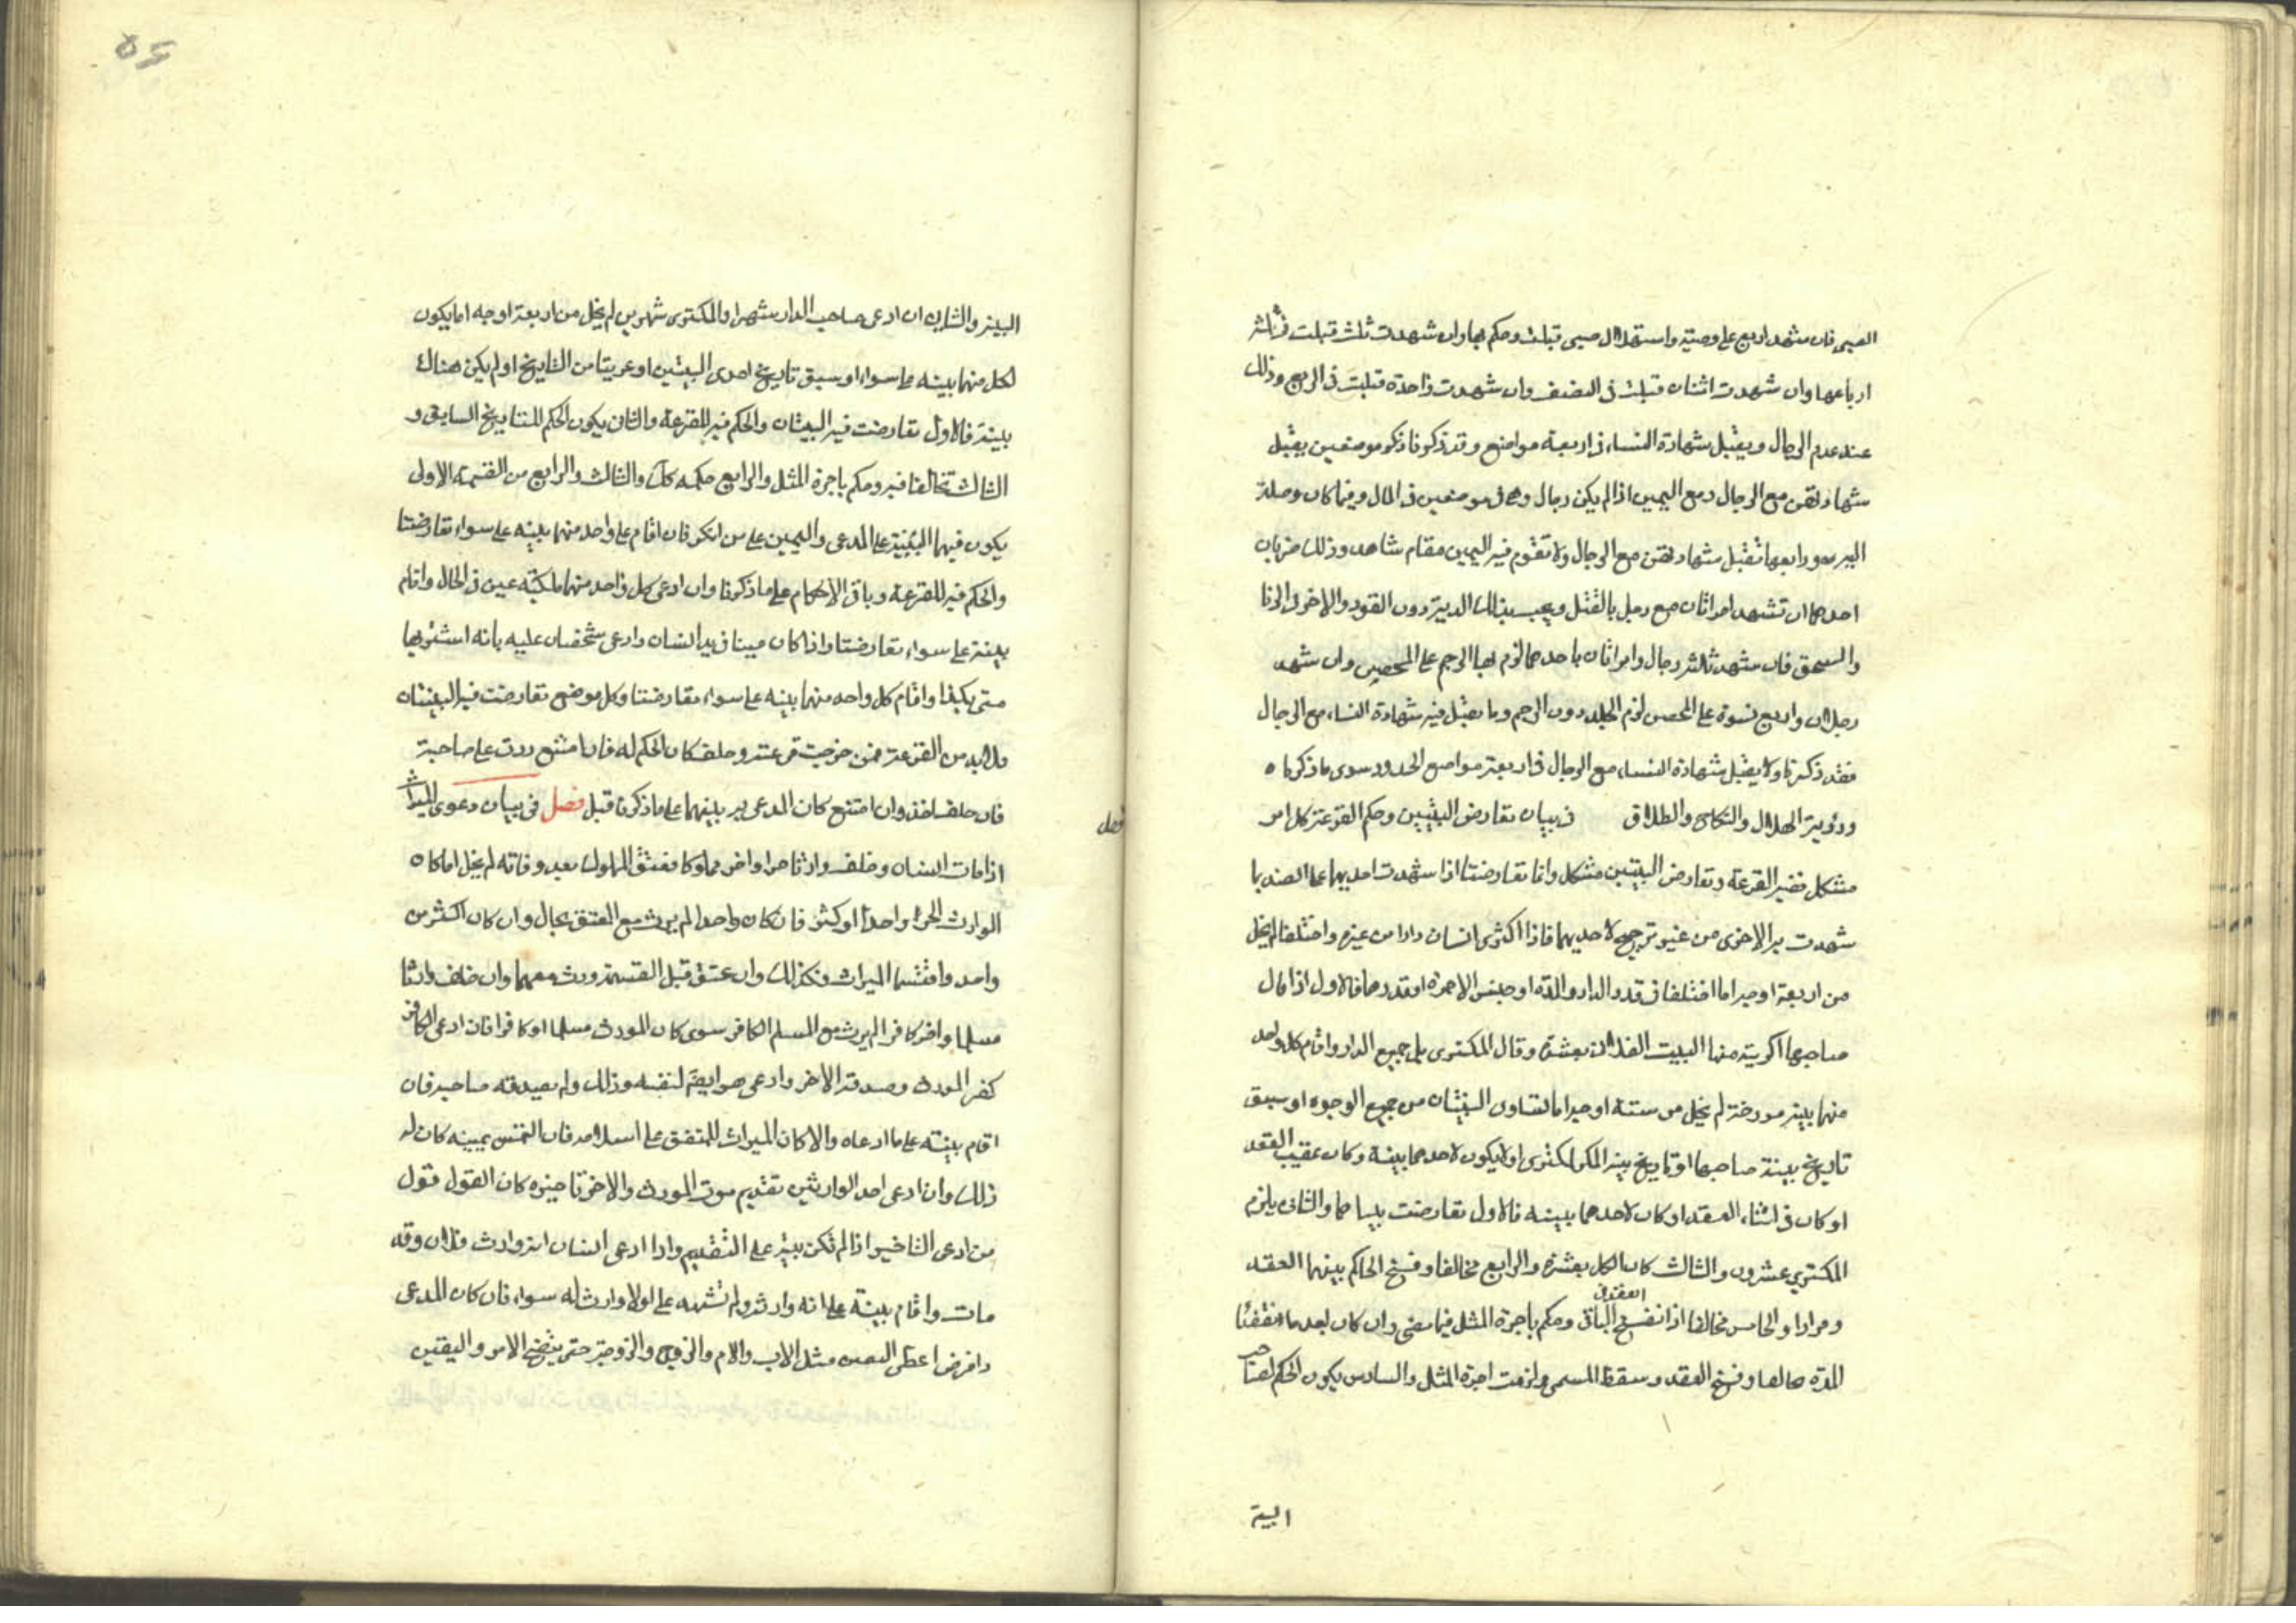 الصبى فان شهد اربع على وصيته واستهلال صبى قبلت وحكم بها وان شهدت ثلث قبلت فى ثلثة
ارباعها وان شهدت اثنان قبلت فى النصف وان شهدت واحدة قبلت فى الربع وذلك
عند عدم الرجال ويقبل شهادة النساء فى اربعة مواضع وقد ذكرنا ذكر موضعين يقبل
شهادتهن مع الرجال ومع اليمين اذا لم يكن رجال وهى فى موضعين فى المال وفيما كان وصلة
اليه ورابعها تقبل شهادتهن مع الرجال ولا تقوم فيه اليمين مقام شاهد وذلك ضربان
احدهما ان تشهد امراتان مع رجل بالقتل ويجب بذلك الدية دون القود والاخر فى الزنا
والسحق فان شهد ثلثة رجال وامراتان باحدهما لزم بها الرجم على المحصن وان شهد
رجلان واربع نسوة على المحصن لزم الجلد دون الرجم وما يقبل فيه شهادة النساء مع الرجال
فقد ذكرنا ولا يقبل شهادة النساء مع الرجال فى اربعة مواضع الحدود سوى ما ذكرناه
ورؤية الهلال والنكاح والطلاق فى بيان تعارض البينتين وحكم القرعة كل امر
فصل
مشكل ففيه القرعة وتعارض البينتين مشكل وانما تعارضتا اذا شهدت احديهما على الضد بما
شهدت به الاخرى من غير ترجيح لاحديهما فاذا اكترى انسان دارا من غيره واختلفا لم يخل
من اربعة اوجه اما اختلفا فى قدر الدار والمدة او جنس الاجرة او قدرها فالاول اذا قال
صاحبها اكريته منها البيت الفلانى بعشرة وقال المكترى بل جميع الدار واقام كل واحد
منهما بينة مورخة لم يخل من ستة اوجه اما تساوى البينتان من جميع الوجوه او سبق
تاريخ بينة صاحبها او تاريخ بينة المكترى او لا يكون لاحدهما بينة وكان عقيب العقد
او كان فى اثناء العقد او كان لاحدهما بينة فالاول تعارضت بيناهما والثانى يلزم
المكترى عشرون والثالث كان الكل بعشرة والرابع تخالفا وفسخ الحاكم بينهما العقد
ومرادا والخامس تخالفا اذا انفسخ العقد فى الباقى وحكم باجرة المثل فيما مضى وان كان بعدما انقضتا
المدة وفسخ العقد وسقط المسمى ولزمت اجرة المثل والسادس يكون الحكم لصاحب
البينة
البينة والثانى ان ادعى صاحب الدار شهرا والمكترى شهرين لم يخل من اربعة اوجه اما يكون
لكل منهما بينة على سواء او سبق تاريخ احدى البينتين او عريتا من التاريخ او لم يكن هناك
بينة فالاول تعارضت فيه البينتان والحكم فيه للقرعة والثانى يكون الحكم للتاريخ السابق و
الثالث تخالفا فيه وحكم باجرة المثل والرابع حكمه كذلك والثالث والرابع من القسمة الاولى
يكون فيهما البينة على المدعى واليمين على من انكر فان اقام على واحد منهما بينه على سواء تعارضتا
والحكم فيه للقرعة وباقى الاحكام على ما ذكرنا وان ادعى كل واحد منهما ملكية عين فى الحال واقام
بينة على سواء تعارضتا واذا كان مبيعا فى يد انسان وادعى شخصان عليه بانه اشتريها
متى بكذا واقام كل واحد منهما بينه على سواء تعارضتا وكل موضع تعارضت فيه البينتان
فلابد من القرعة فمن خرجت قرعته وحلف كان الحكم له فان امتنع ردت على صاحبه
فان حلف اخذ وان امتنع كان المدعى به بينهما على ما ذكرنا قبل فصل فى بيان دعوى الميراث
اذا مات انسان وخلف وارثا حرا واخر مملوكا فعتق المملوك بعد وفاته لم يخل اما كان
الوارث الحر واحدا او كثر فان كان واحدا لم يرث مع العتق بحال وان كان اكثر من
واحد واقتسما الميراث فكذلك وان عتق قبل القسمة ورث معهما وان خلف وارثا
مسلما واخر كافرا لم يرث مع المسلم الكافر سوى كان المورث مسلما او كافرا فان ادعى الكافر
كفر المورث وصدقه الاخر وادعى هو ايضا لنفسه وذلك ولم يصدقه صاحبه فان
اقام بينته على ما ادعاه والا كان الميراث للمتفق على اسلامه فان التمس يمينه كان له
ذلك وان ادعى احد الوارثين تقديم موت المورث والاخر تاخيره كان القول قول
من ادعى التاخير اذا لم تكن بينة على التقديم واذا ادعى انسان انه وارث فلان وقد
مات واقام بينة على انه وارثه ولم تشهد على ان لا وارث له سواه فان كان المدعى
ذا فرض اعطى اليقين مثل الاب والام والزوج والزوجة حتى يتضح الامر واليقين